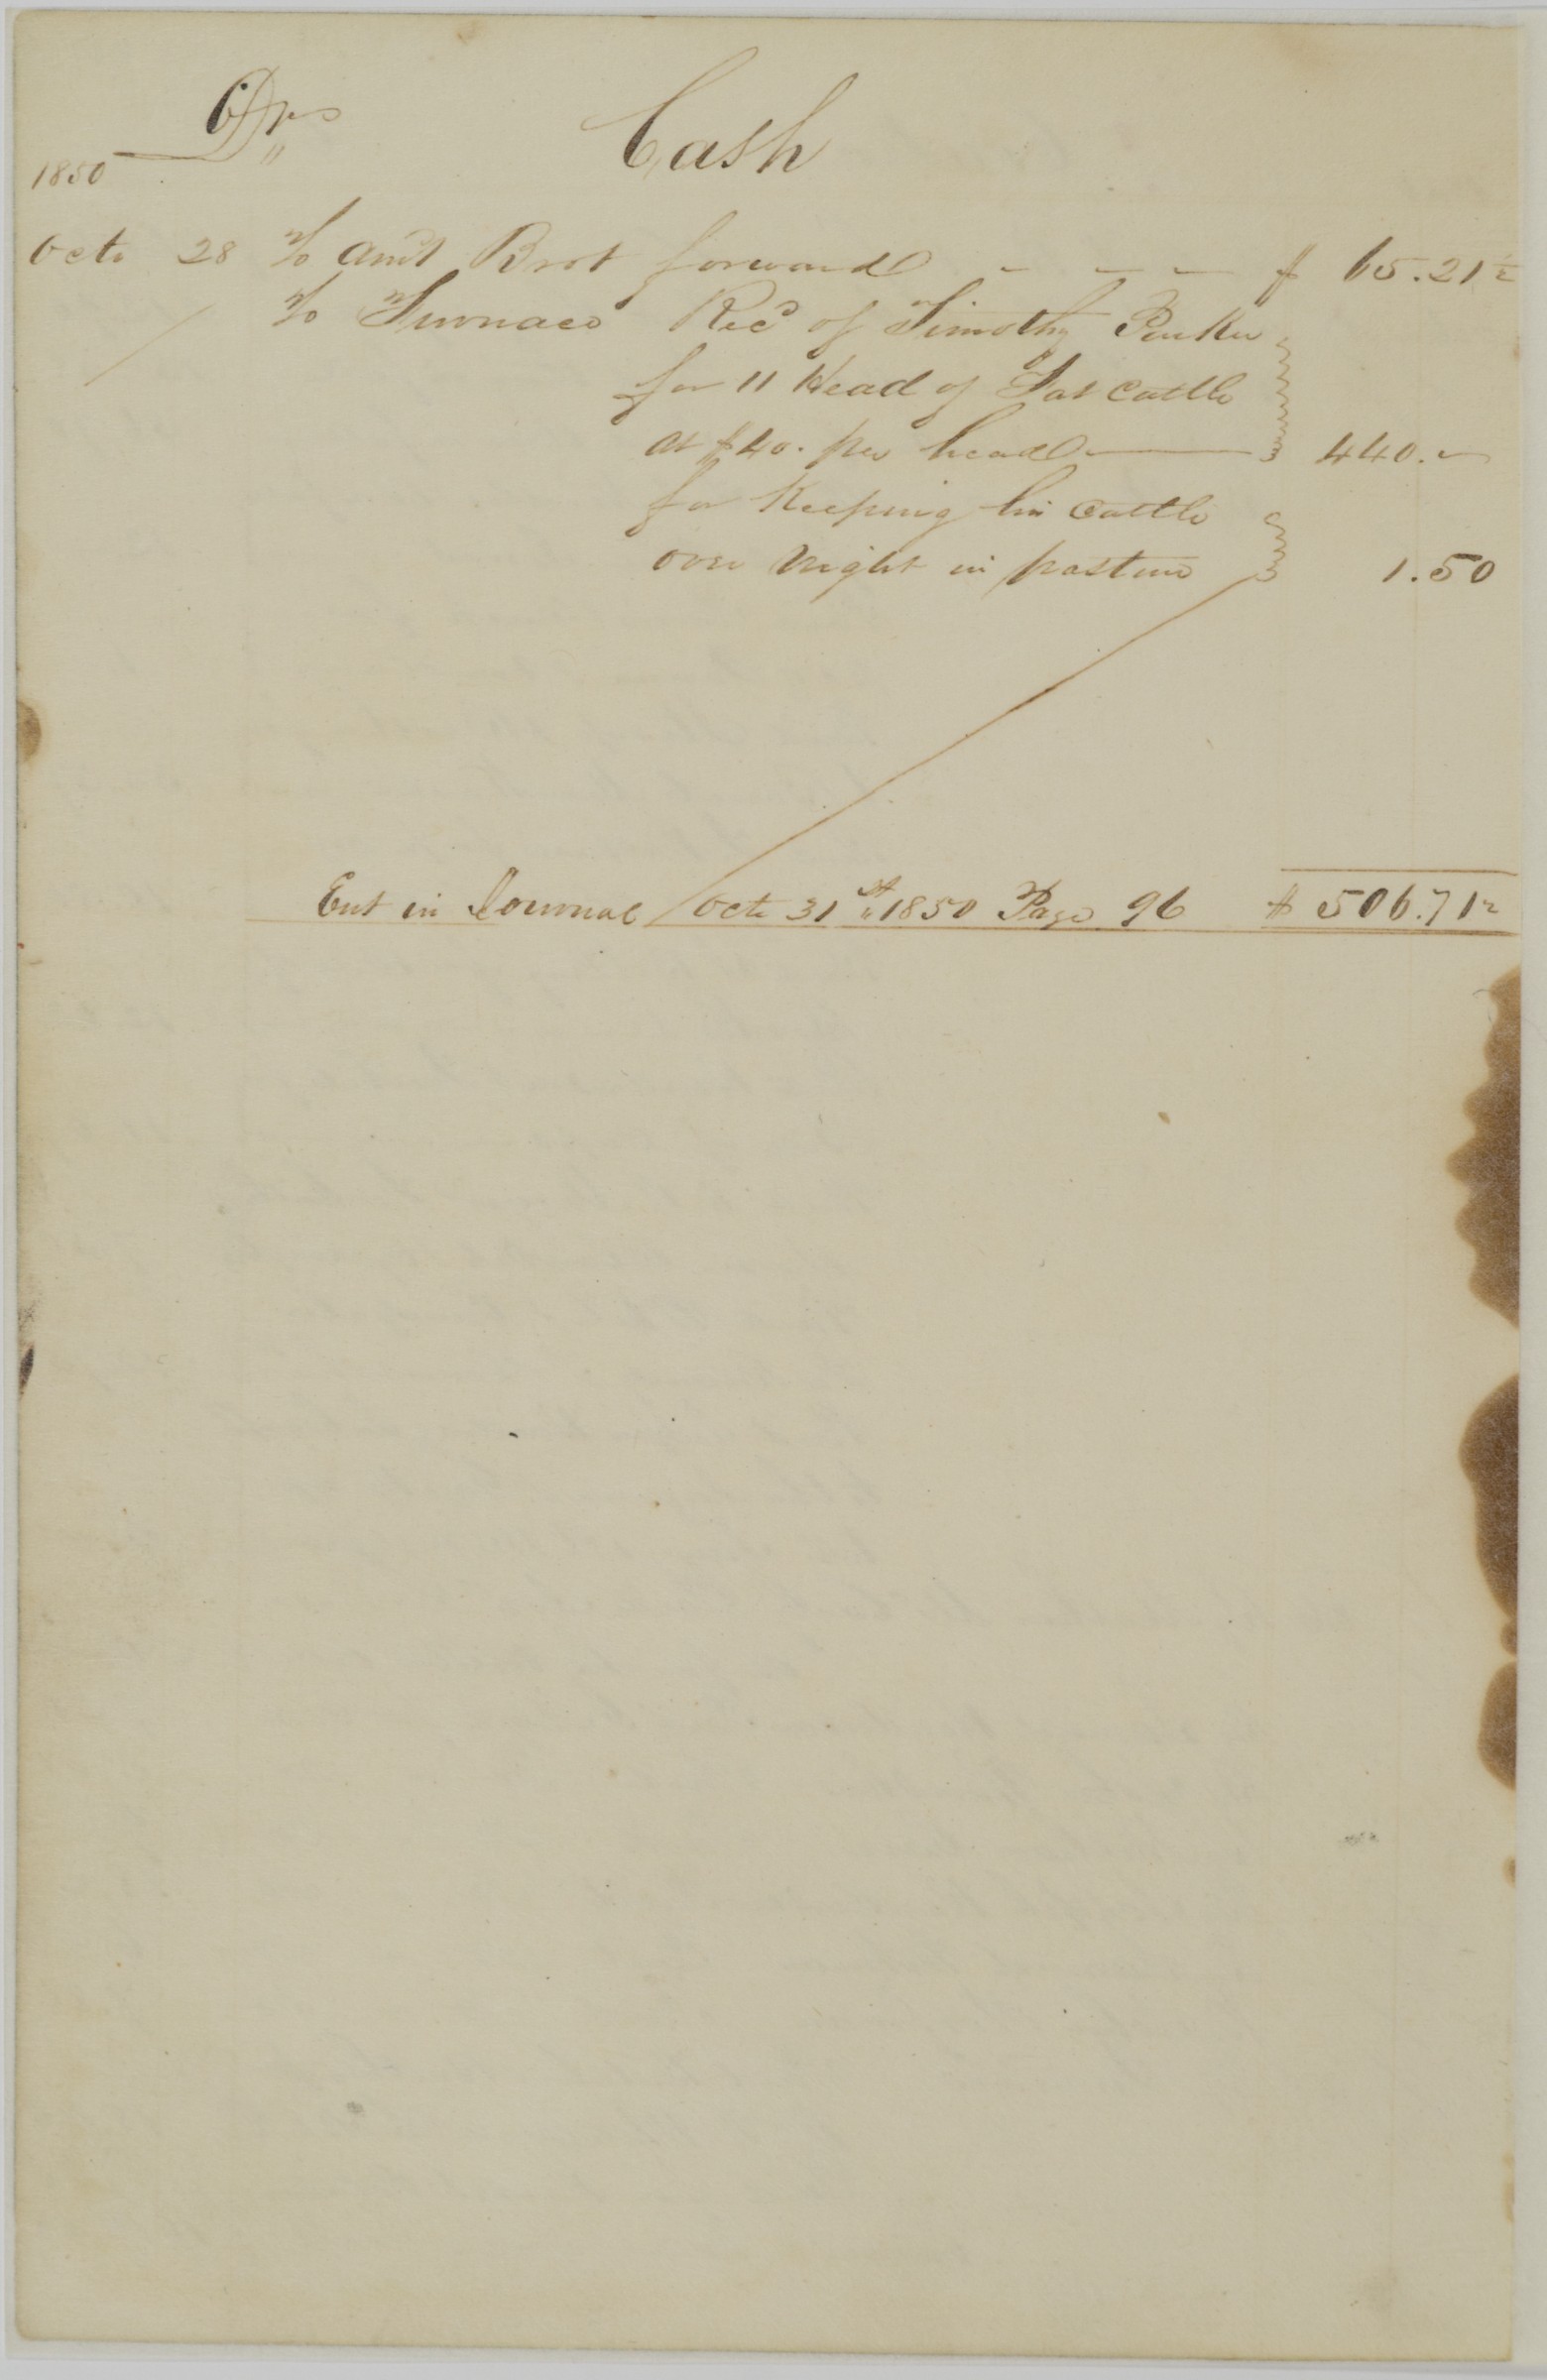 6 Dr.
Cash
1850
Octo 28 To amt Brot forward - - - $ 65.21½
To Furnace Recd of Timothy Parker
for 11 Head of Fat Cattle
at $40. per head 440.-
for Keeping his Cattle
over Night in pasture 1.50
Ent in Journal Octo 31st 1850 Page 96 $ 506.71½